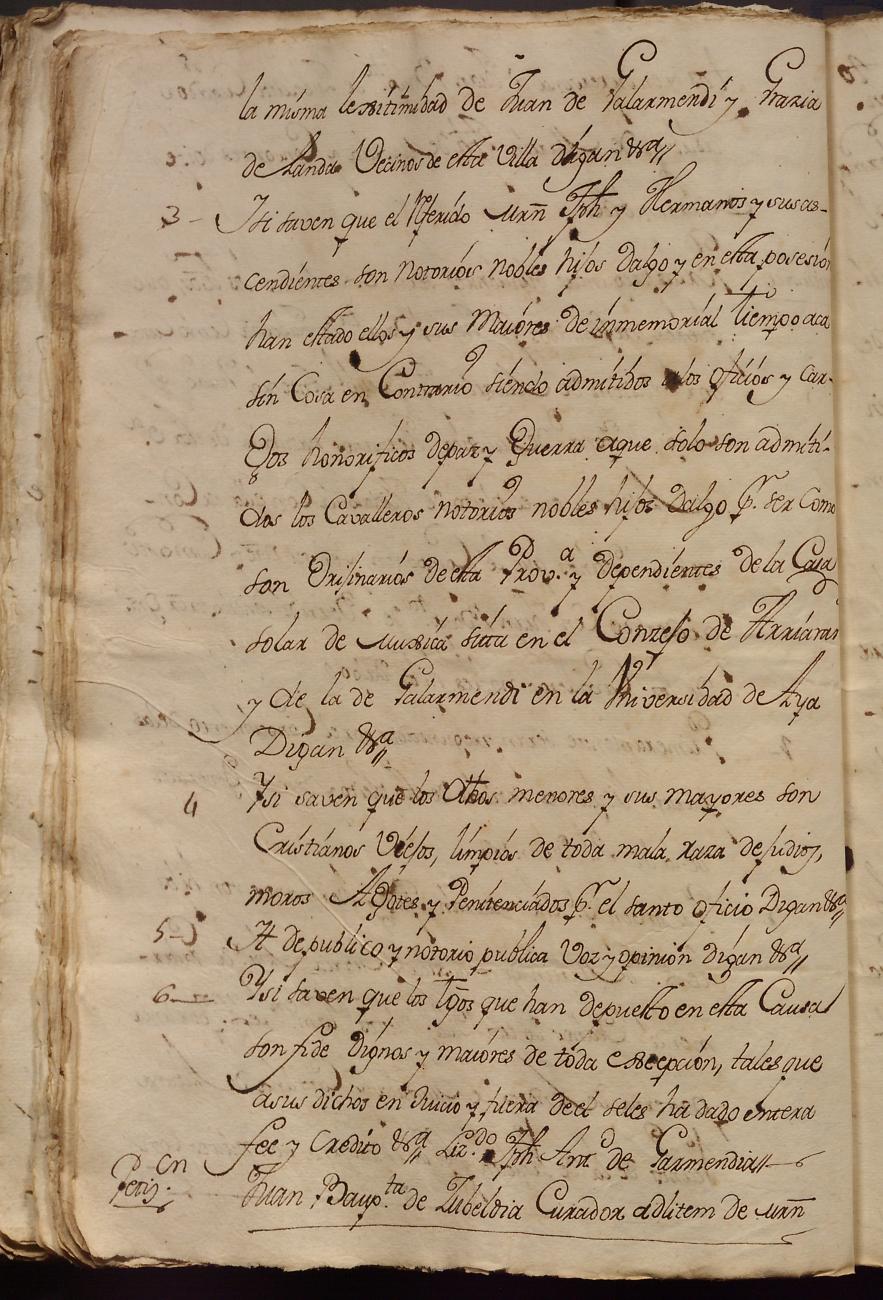 la misma lexitimidad de Juan de Galarmendi y Grazia
de Landa Vecinos de esta Villa digan &ª
3 - Y si saven que el Referido Mrñ Jph y Hermanos y sus as-
cendientes son Notorios nobles hijos dalgo y en esta posesión
han estado ellos y sus Maiores de inmemorial tiempo aca
sin Cosa en Contrario siendo admitidos a los oficios y car-
gos honorificos de paz y Guerra a que solo son admiti-
dos los Cavalleros notorios nobles hijos Dalgo pr. ser Como
son Orijinarios de esta Prova. y dependientes de la Casa
solar de Muxica sita en el Conzejo de Arriaran
y de la de Galarmendi en la Universidad de Aya
Digan &ª
4 Y si saven que los dhos menores y sus mayores son
Cristianos Viejos, limpios de toda mala raza de judios,
moros Agotes y Penitenciados pr. el santo oficio Digan &ª
5- It de publico y notorio publica Voz y opinion digan &ª
6- Y si saven que los tgos que han depuesto en esta Causa
son fide dignos y maiores de toda exsepción, tales que
a sus dichos en Juicio y fuera de el se les ha dado entera
fee y Credito &ª Lizdo. Jph Antº de Garmendia
Petiz.on Juan Baup.ta de Zubeldia Curador adlitem de Mrñ